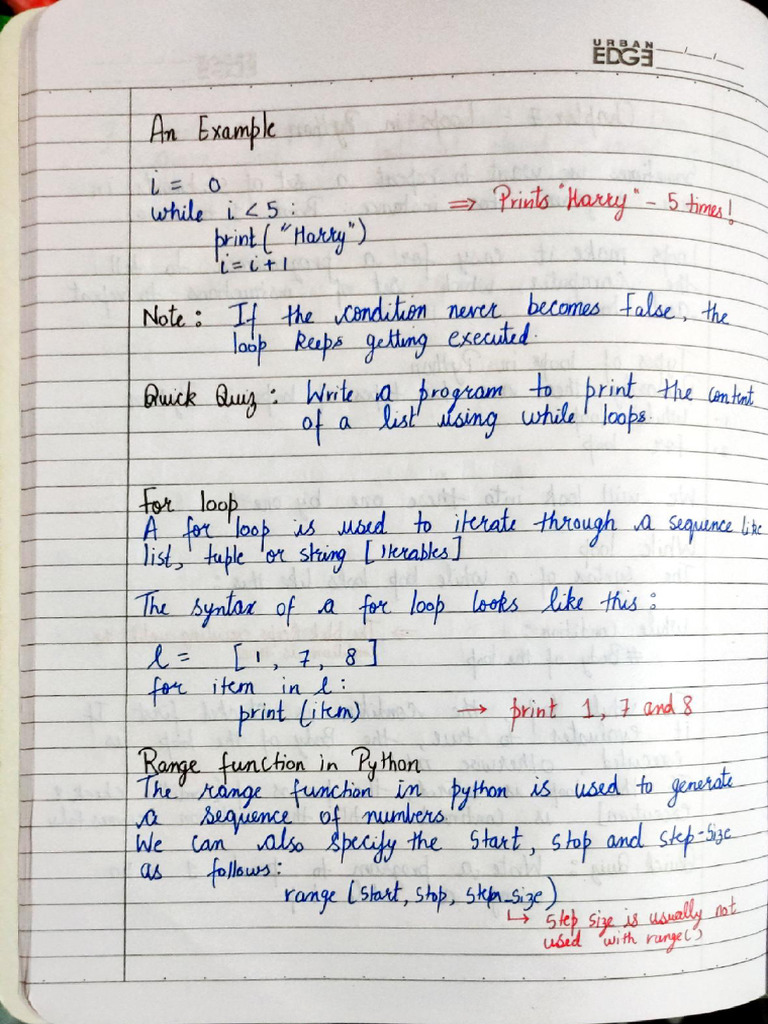 URBAN
EDGE
An Example
i = 0
while i < 5 : ⇒ Prints "Harry" - 5 times!
print( "Harry")
i = i + 1
Note : If the condition never becomes false, the
loop keeps getting executed.
Quick Quiz : Write a program to print the content
of a list using while loops.
For loop
A for loop is used to iterate through a sequence like
list, tuple or string [iterables]
The syntax of a for loop looks like this :
l = [1, 7, 8]
for item in l :
print (item) → print 1, 7 and 8
Range function in Python
The range function in python is used to generate
a sequence of numbers.
We can also specify the start, stop and step-size
as follows:
range (start, stop, step_size)
↳ step size is usually not
used with range()